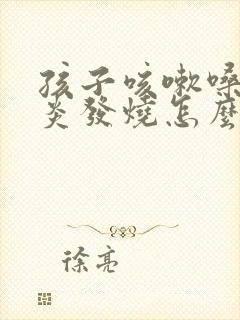 孩子咳嗽嗓
炎發燒怎麼
徐亮